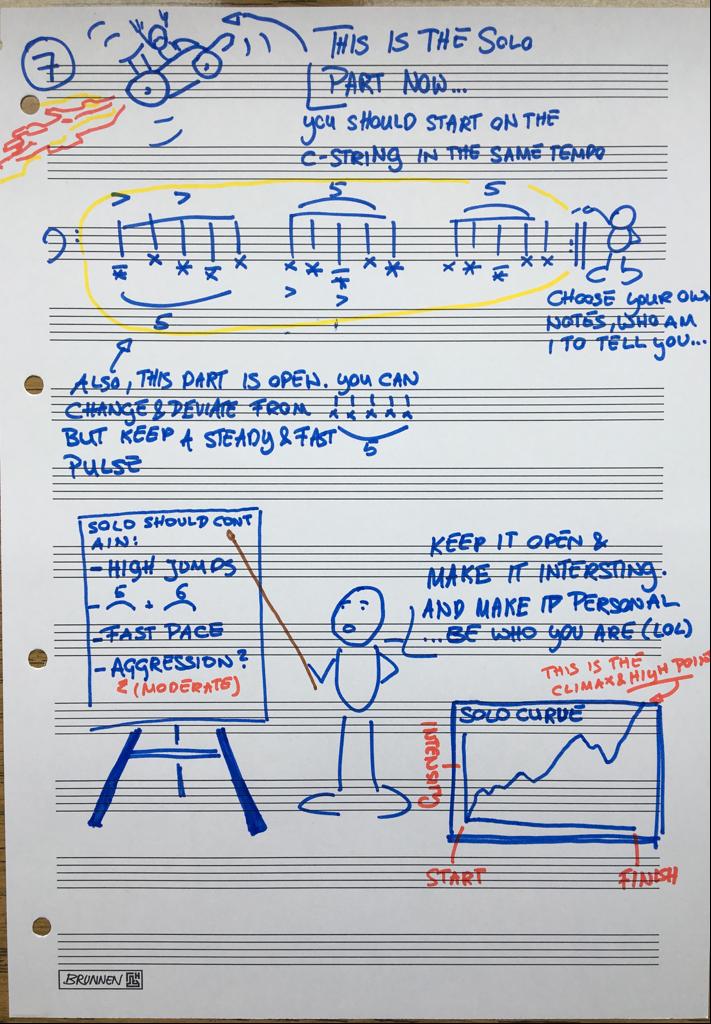 7
THIS IS THE SOLO
PART NOW...
YOU SHOULD START ON THE
C-STRING IN THE SAME TEMPO
5
5
5
CHOOSE YOUR OWN
NOTES, WHO AM
I TO TELL YOU...
ALSO, THIS PART IS OPEN. YOU CAN
CHANGE & DEVIATE FROM
BUT KEEP A STEADY & FAST
5
PULSE
SOLO SHOULD CONT
AIN:
- HIGH JUMPS
- 5 + 6
- FAST PACE
- AGGRESSION?
(MODERATE)
KEEP IT OPEN &
MAKE IT INTERSTING.
AND MAKE IT PERSONAL
...BE WHO YOU ARE (LOL)
THIS IS THE
CLIMAX & HIGH POINT
SOLO CURVE
INTENSITY
START
FINISH
BRUNNEN